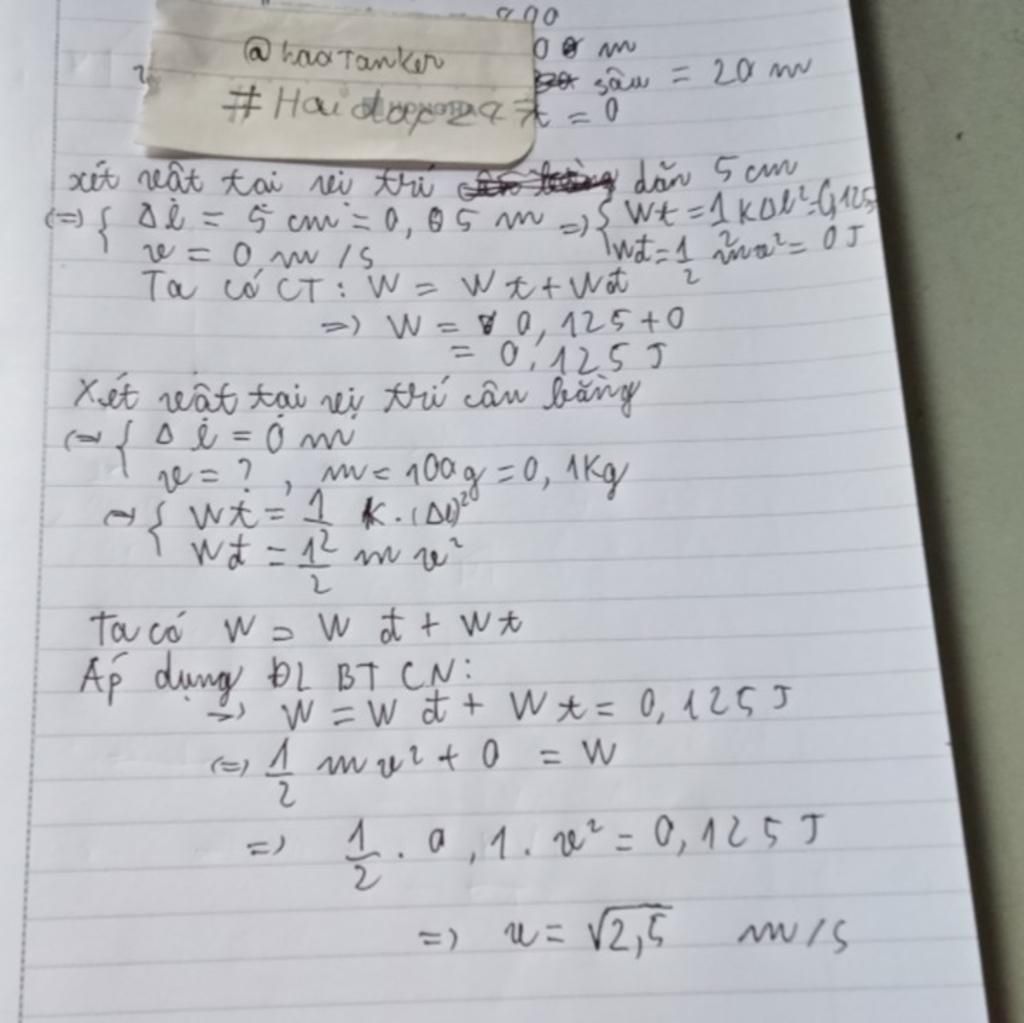 0 m
@haoTanker
sâu = 20 m
#Hoidap247
t = 0
xét vật tại vị trí dãn 5 cm
(=) { Δl = 5 cm = 0,05 m =) { Wt = 1/2 KΔl² = 0,125
v = 0 m/s Wđ = 1/2 mv² = 0 J
Ta có CT: W = Wt + Wđ
=) W = 0,125 + 0
= 0,125 J
Xét vật tại vị trí cân bằng
(=) { Δl = 0 m
v = ?, m = 100g = 0,1Kg
=) { Wt = 1/2 K.(Δl)²
Wđ = 1/2 m v²
Ta có W = Wđ + Wt
Áp dụng ĐL BT CN:
=) W = Wđ + Wt = 0,125 J
(=) 1/2 mv² + 0 = W
=) 1/2 . 0,1. v² = 0,125 J
=) v = √2,5 m/s